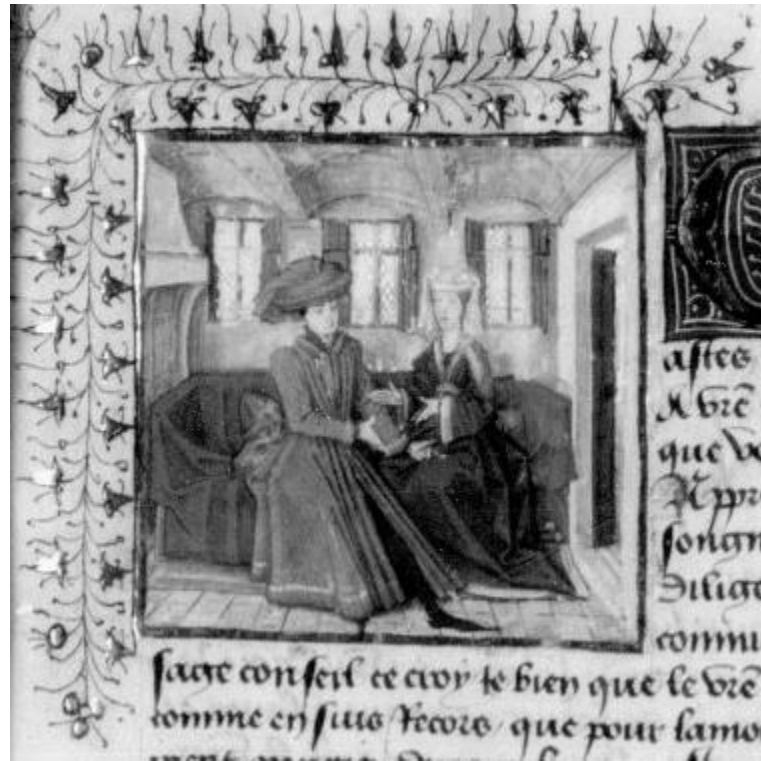 astes
A vr̄e
que vo
Rppro
songn
Dilige
commu
sage conseil ce croy Je bien que le vr̄e
comme en suis Recors / que pour lamo